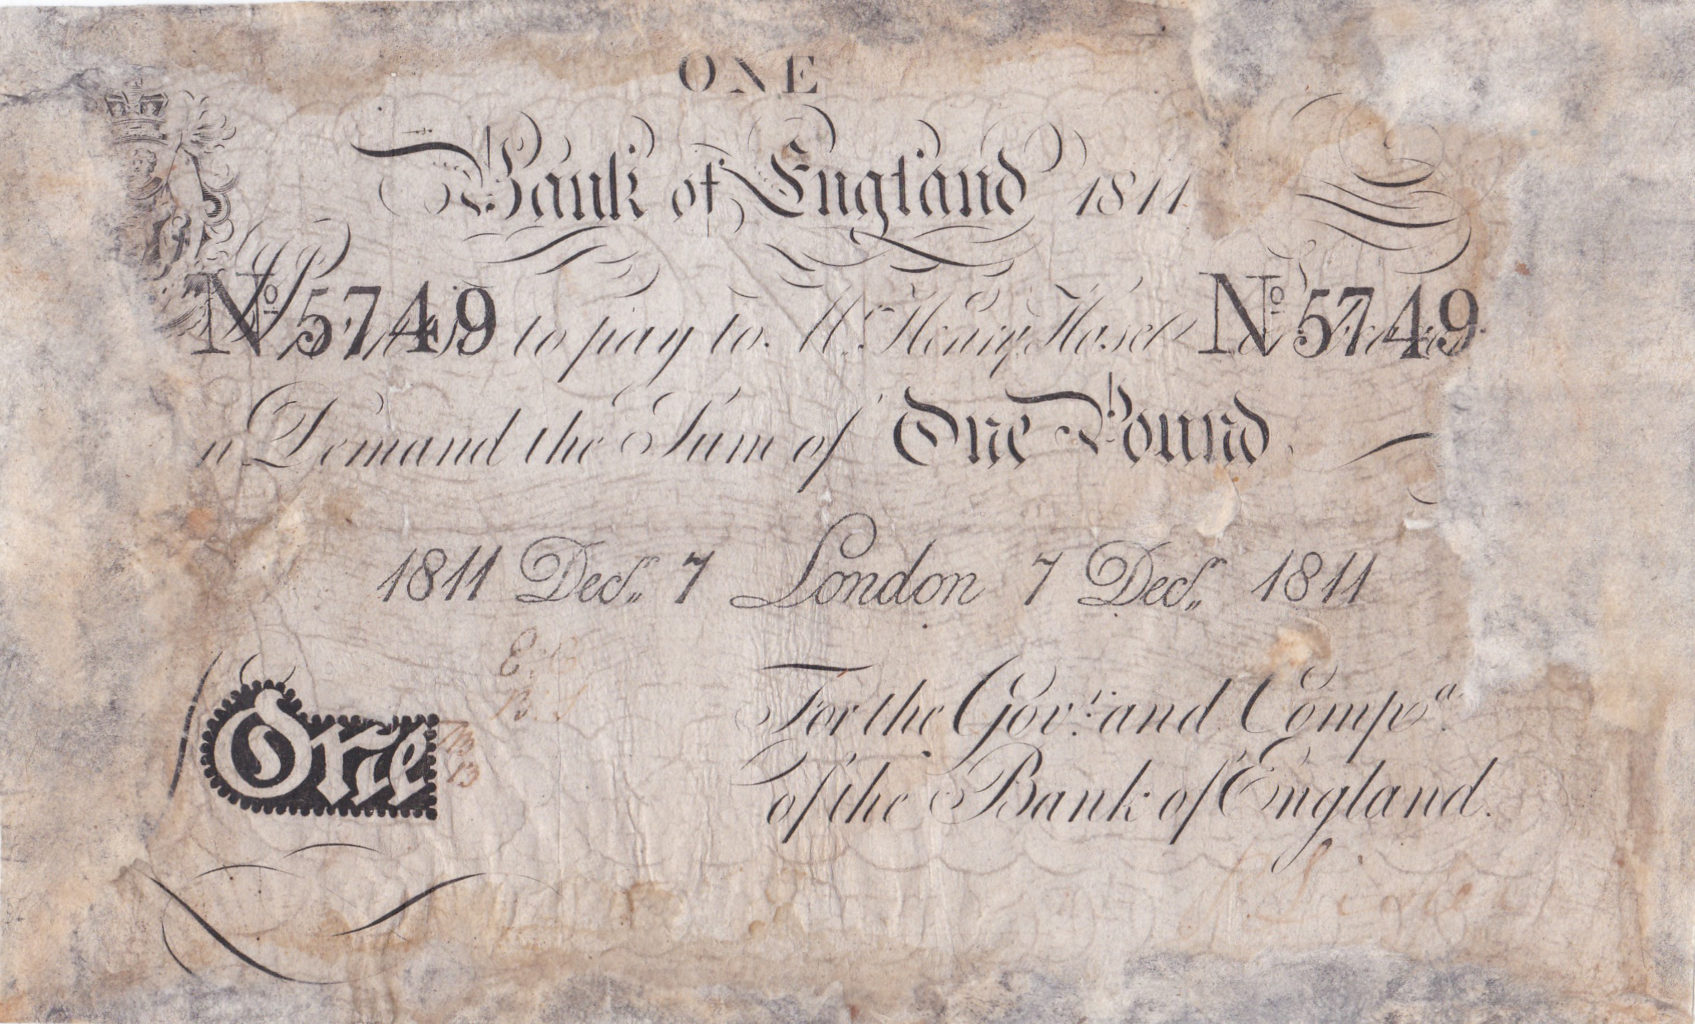 ONE
Bank of England 1811
No 5749 to pay to Mr. Henry Hase No 5749
Demand the Sum of One Pound
1811 Decr. 7 London 7 Decr. 1811
For the Govr. and Compa.
One
of the Bank of England.